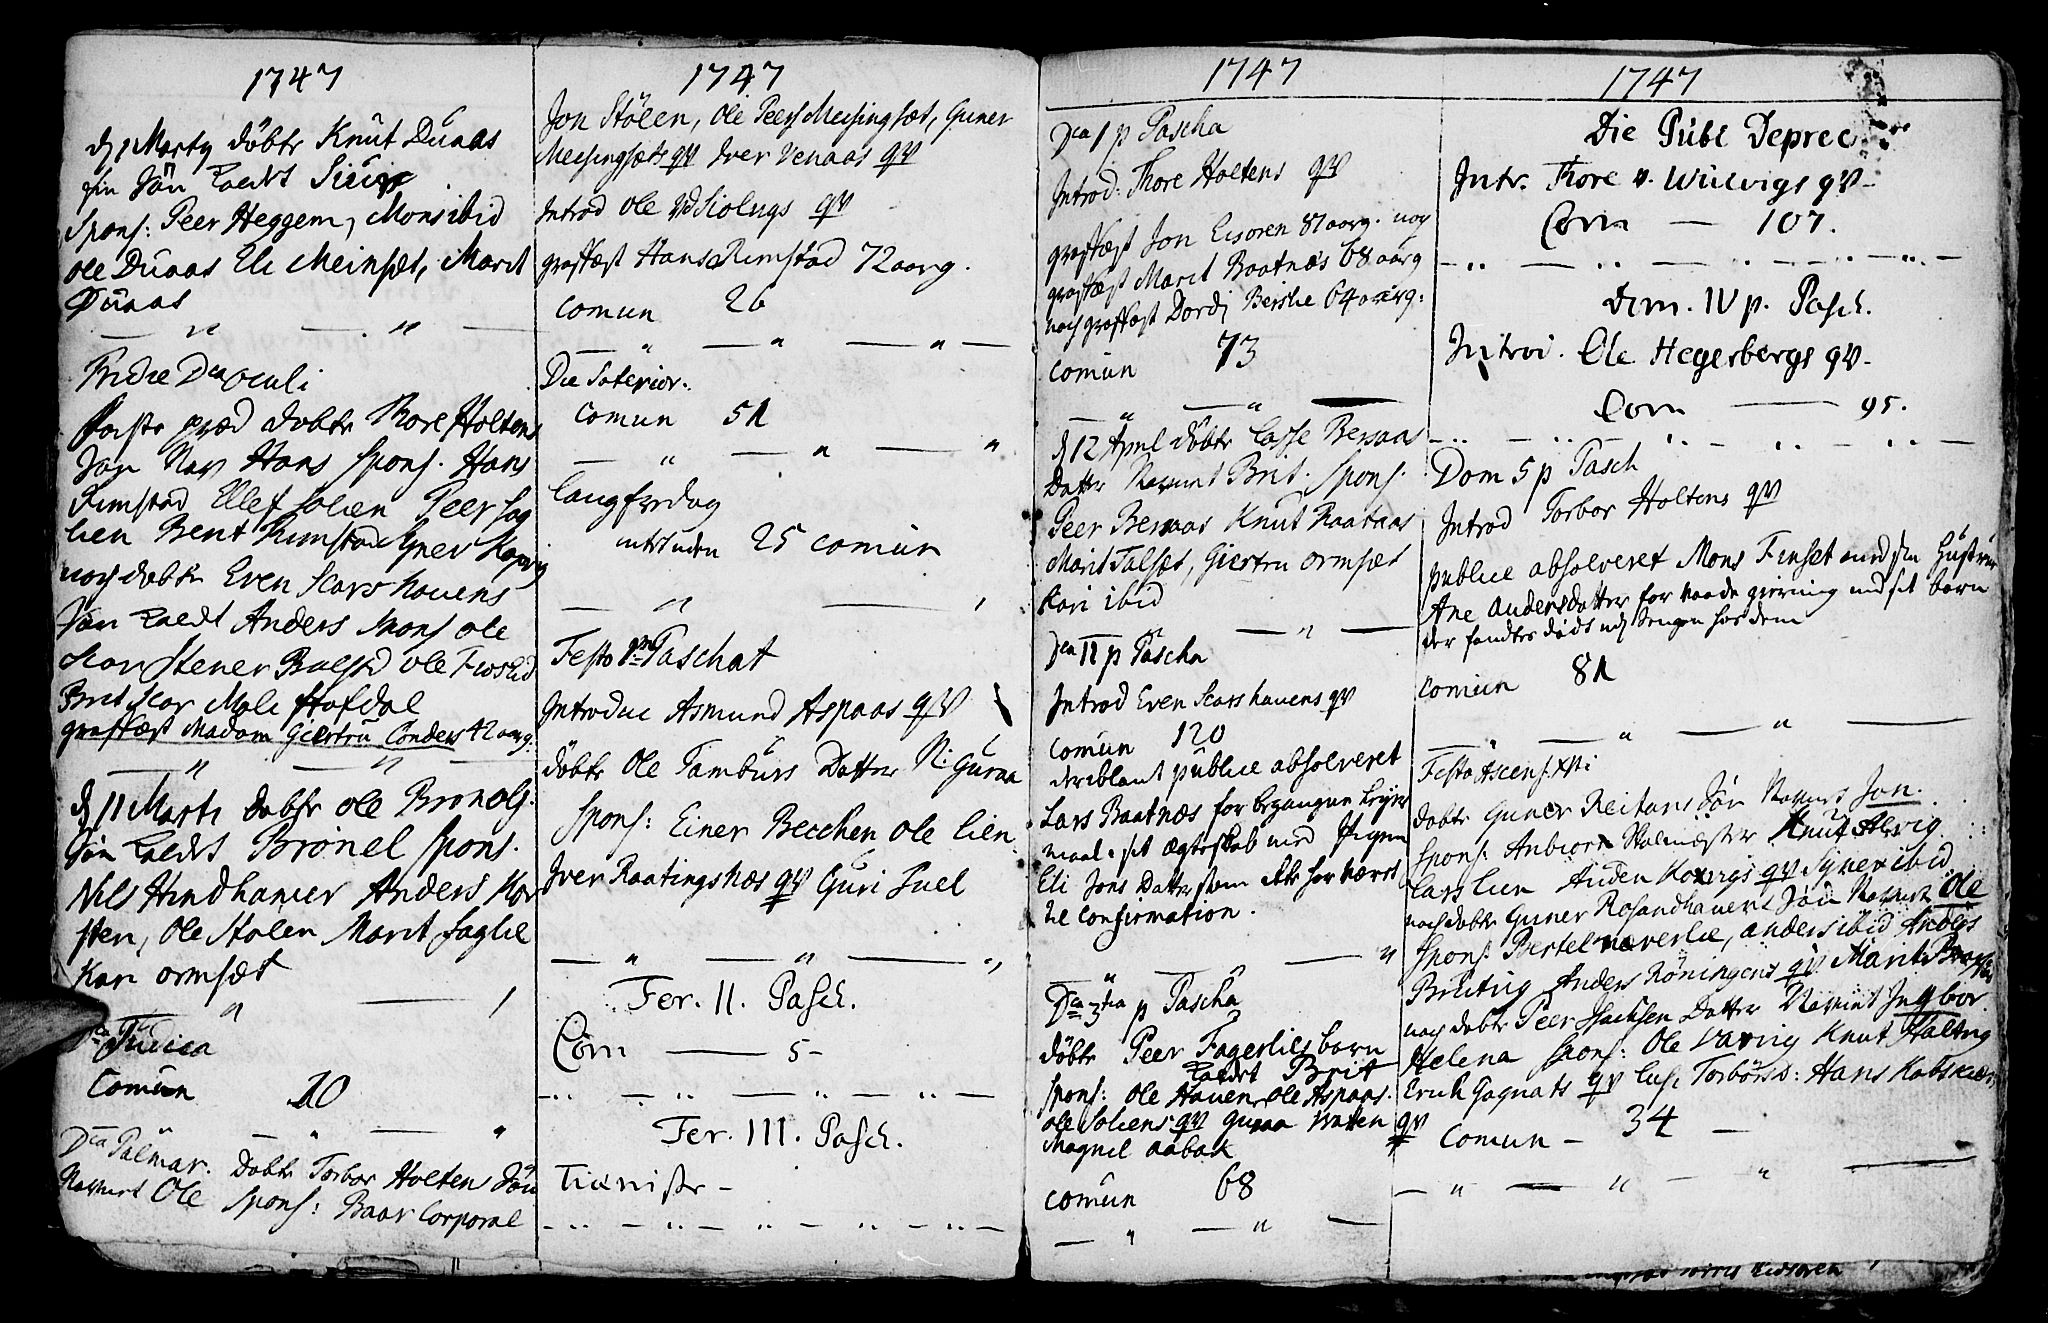 1747
d 1 Marty döbtr Knut Duaas
sin Sön kaldt Siur
Spons: Peer Heggem, Mons ibid
Ole Duaas Eli Meinsæt, Marit
Duaas
Fridie Dca Oculi
præd döbtr Thore Holtens
Søn Nav Hans Spons. Hans
Rimstad Ellef Solien Peer Sag
lien Bent Rimstad
noch döbtr Even Scarshouens
Søn kaldt Anders Spons Ole
Scar Stener Ole
Brit Scar Mali Hofdal
graffæst Madam Giertru Conders 42 aarg.
d 11 Marti döbtr Ole Bronols
Søn kaldt Brönel Spons.
Nils Hindhamer Anders Kor
sten, Ole Stølen Marit Saglie
Kari ormsæt
Dca Judica
Comun 20
Dca Palmar. Döbtr Torbor Holten Søn
Navnet Ole Spons: Baar Corporal
1747
Jon Stölen, Ole Peers Meisingset, Guner
Meisingsæts qv Iver Venaas qv
Introd Ole qv
graffæst Hans Rimstad 72 aarg.
Comun 26
Die
Comun 51
Langfredag
25 comun
Festo Paschat
Introduc Asmund Aspaas qv
döbtr Ole Tamburs Datter N: Guraa
Spons: Einer Becchen Ole Lien
Iver Raatingsnæs qv Guri Suel
Fer. II. Pasch.
Com — 5 -
Fer. III. Pasch.
Tienister -
1747
Dca 1 p Pascha
Introd: Thore Holtens qv
graffæst Jon Eisoren 81 aarg. noch
graffæst Marit Baatnæs 68 aarg
noch graffæst Dordi 64 aarg:
comun 73
d 12 April döbtr Lasse Bersaas
Datter Navnet Brit. Spons.
Peer Bersaas Knut Raataas
Marit Talsæt, Giertru ormsæt
Kari ibid
Dca II p Pascha
Introd Even Scarshauens qv
comun 120
deriblant publice absolveret
Lars Baatnæs for begangne Leyer
maal i sit ægteskab med Pigen
Eli Jons Datter som ikke har været
til confirmation.
Dca 3tia p Pascha
döbtr Peer Fagerlies barn
kaldet Brit
Spons: Ole Hauen, Ole Aspaas.
Ole Soliens qv Guraa Vatten qv
Magnil aabak
comun 68
1747
Die Publ Deprec
Intr. Thore v. Wulvigs qv-
Com — 107.
Dom. IV p. Pasch.
Introd. Ole Hegerbergs qv-
Com — 95.
Dom 5 p Pasch
Introd Torbor Holtens qv
publice absolveret Mons Finset med sin Hustrue
Ane Andersdatter for vaade gierning med sit barn
der fandtes dödt udj Sengen hos dem
comun 81
Festo Ascens. Xsti
döbtr Guner Reitans Sön Navnet Jon.
Spons: Anbiorn Knut Alvig.
Lars Lien Auden qv Syner ibid
noch döbtr Guner Rosandhauens Sön Navnet Ole
Spons: Bertel Næverlie, anders ibid Anders
Brutrig Anders Röningens qv Marit
noch döbtr Peer Isachsen Datter Navnet Ingbor
Helena Spons: Ole Vævig Knut Halvig
Erich Gagnats qv Lisi Torbörsd: Hans
Comun - 34 -